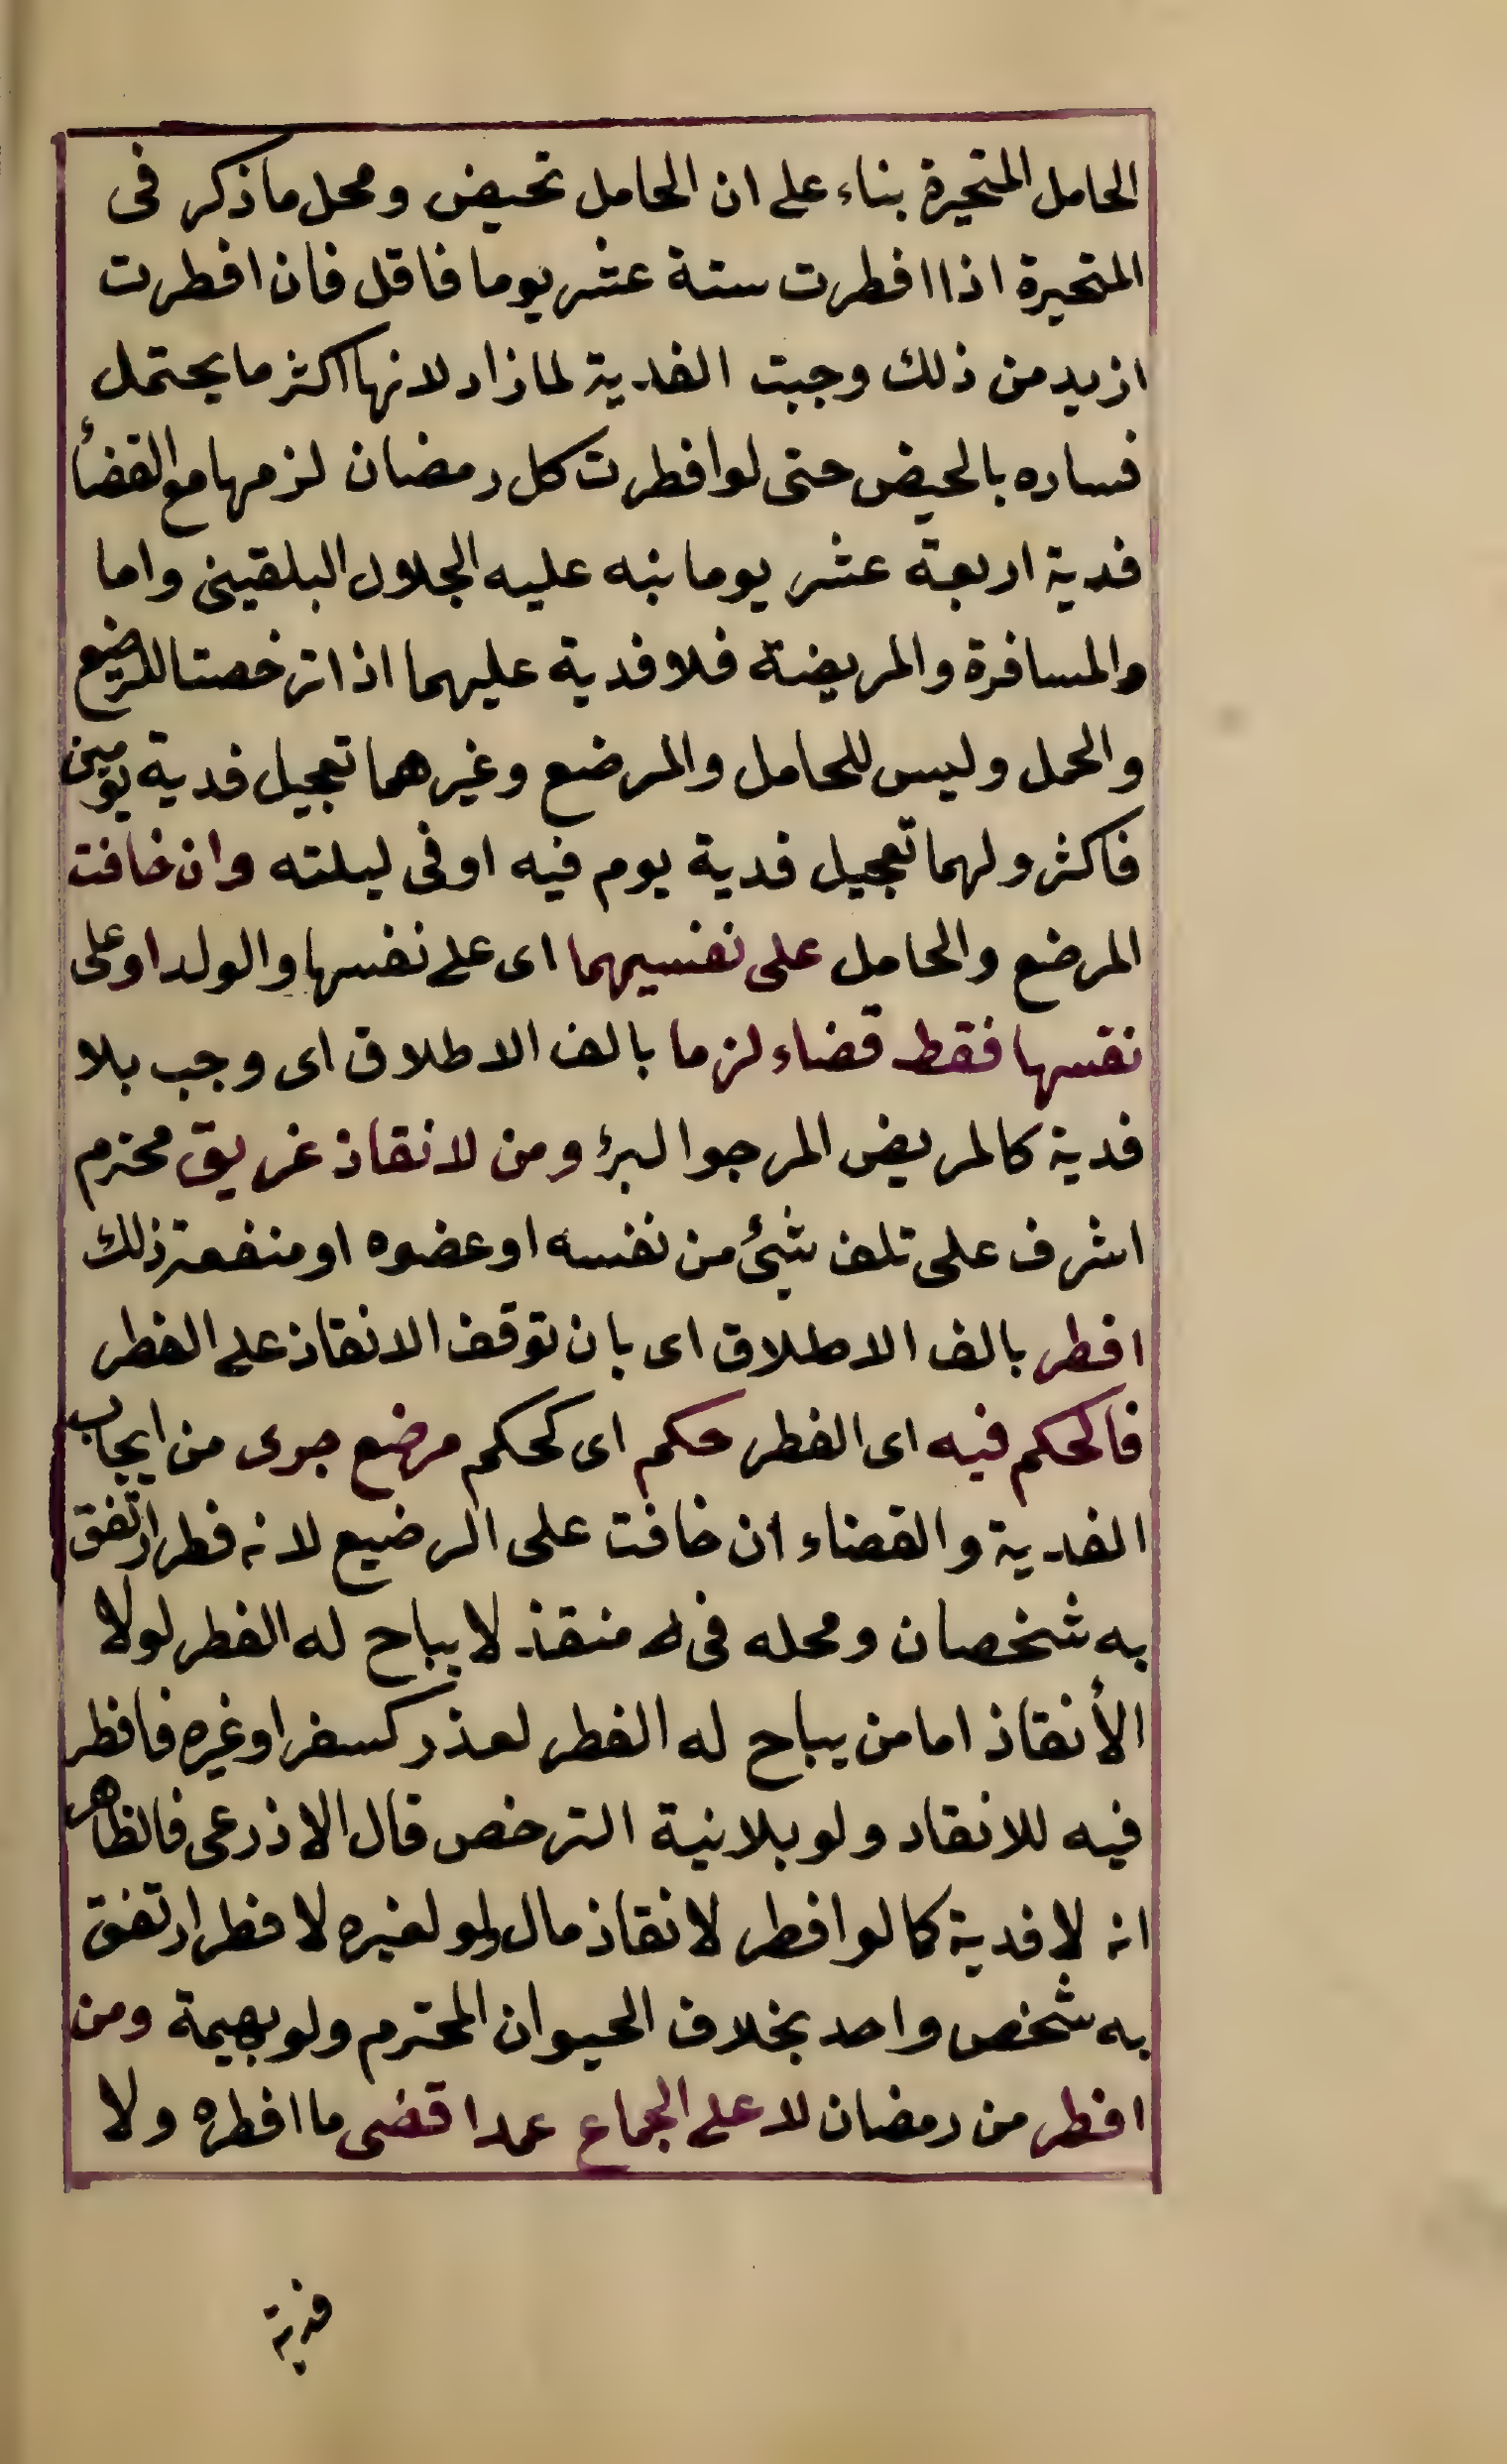 الحامل المتحيرة بناء على ان الحامل تحيض ومحل ماذكر فى
المتحيرة اذا افطرت ستة عشر يوما فاقل فان افطرت
ازيد من ذلك وجبت الفدية لمازاد لانها اكثر ما يحتمل
فساده بالحيض حتى لو افطرت كل رمضان لزمها مع القضأ
فدية اربعة عشر يوما نبه عليه الجلال البلقينى واما
والمسافرة والمريضة فلا فدية عليهما اذا ترخصتا للرضيع
والحمل وليس للحامل والمرضع وغيرهما تعجيل فدية يومين
فاكثر ولهما تعجيل فدية يوم فيه او فى ليلته وان خافت
المرضع والحامل على نفسيهما اى على نفسها والولد او على
نفسها فقط قضاء لزما بالف الاطلاق اى وجب بلا
فدية كالمريض المرجوا لبرؤ ومن لانقاذ غريق محترم
اشرف على تلف شئ من نفسه او عضوه او منفعة ذلك
افطر بالف الاطلاق اى بان توقف الانقاذ على الفطر
فالحكم فيه اى الفطر حكم اى كحكم مرضع جرى من ايجاب
الفدية والقضاء ان خافت على الرضيع لانه فطر ارتفق
به شخصان ومحله فى منقذ لا يباح له الفطر لولا
الأنقاذ اما من يباح له الفطر لعذر كسفر اوغيره فافطر
فيه للانقاد ولو بلانية الترخص قال الاذرعى فالظاهر
انه لا فدية كما لو افطر لانقاذ مال ولو لغيره لا فطر ارتفق
به شخص واحد بخلاف الحيوان المحترم ولو بهيمة ومن
افطر من رمضان لا على الجماع عمدا قضى ما افطره ولا
فدية